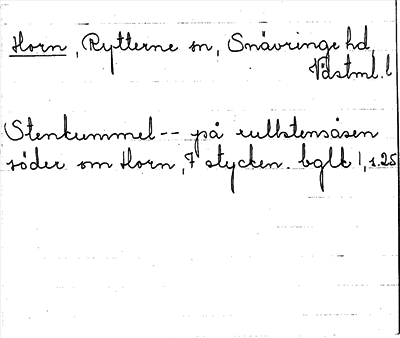 Horn, Rytterne sn, Snävringe hd,
Västml. l
Stenkummel -- på rullstensåsen
söder om Horn, 7 stycken. bglb 1, s.25